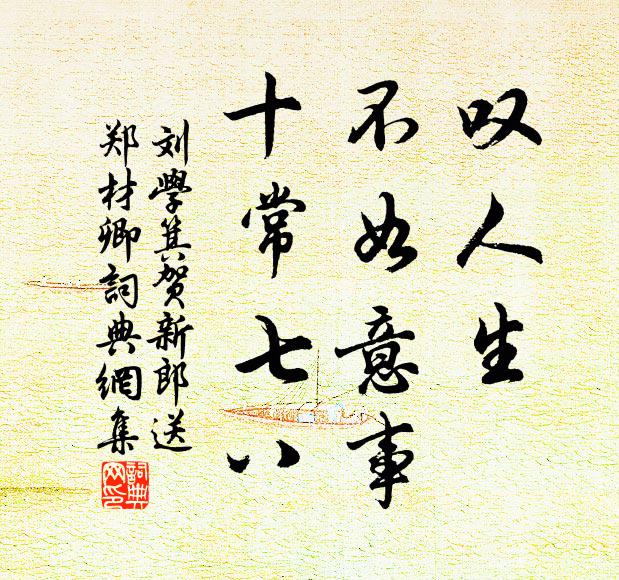 叹人生
不如意事
十常七八
刘學箕贺新郎送
郑材卿詞典網集
詞典网印